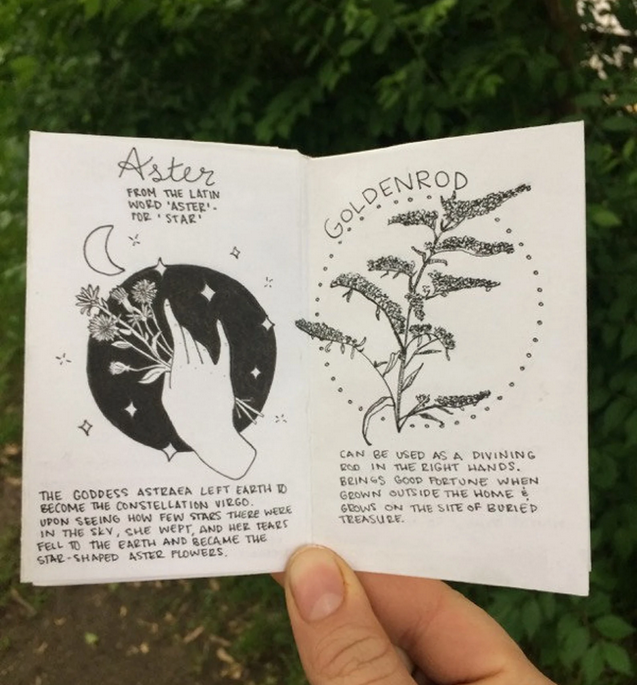 Aster
FROM THE LATIN
WORD 'ASTER'-
FOR 'STAR'
THE GODDESS ASTRAEA LEFT EARTH TO
BECOME THE CONSTELLATION VIRGO.
UPON SEEING HOW FEW STARS THERE WERE
IN THE SKY, SHE WEPT, AND HER TEARS
FELL TO THE EARTH AND BECAME THE
STAR-SHAPED ASTER FLOWERS.
GOLDENROD
CAN BE USED AS A DIVINING
ROD IN THE RIGHT HANDS.
BRINGS GOOD FORTUNE WHEN
GROWN OUTSIDE THE HOME &
GROWS ON THE SITE OF BURIED
TREASURE.